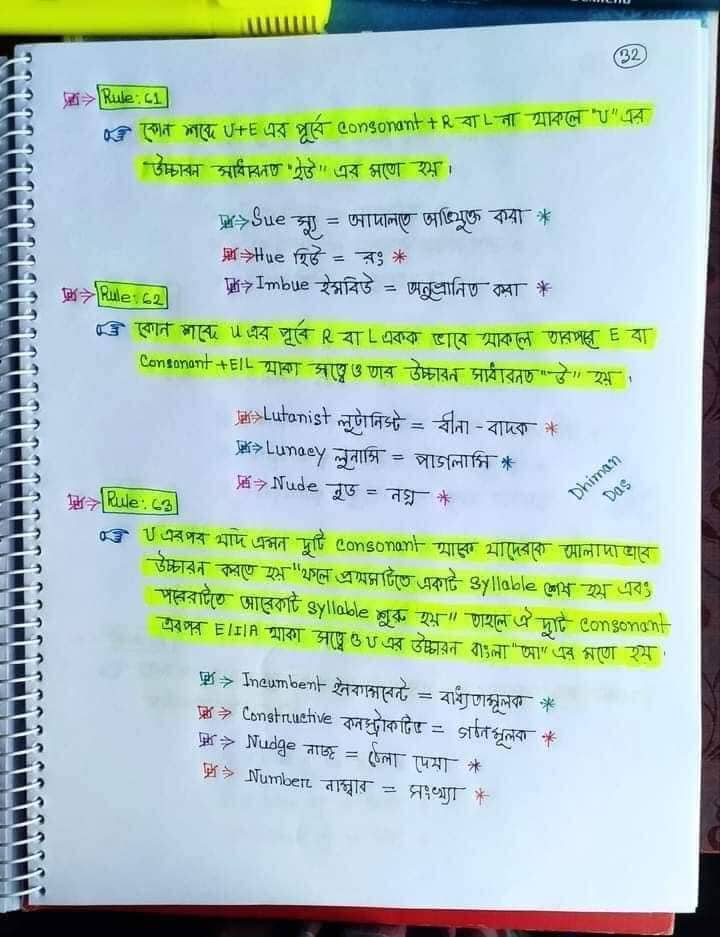 32
Rule: 61
কোন শব্দে U+E এর পূর্বে consonant + R বা L না থাকলে "U" এর
উচ্চারন সাধারনত "ইউ" এর মতো হয়।
Sue স্যু = আদালতে অভিযুক্ত করা *
Hue হিউ = রং *
Imbue ইমবিউ = অনুপ্রানিত করা *
Rule: 62
কোন শব্দে U এর পূর্বে R বা L একক ভাবে থাকলে তারপরে E বা
Consonant +E/L থাকা সত্ত্বেও তার উচ্চারন সাধারনত "উ" হয়।
Lutanist লূটানিস্ট = বীনা - বাদক *
Lunacy লূনাসি = পাগলামি *
Nude নূড = নগ্ন *
Dhiman
Das
Rule: 63
U এরপর যদি এমন দুটি consonant থাকে যাদেরকে আলাদা ভাবে
উচ্চারন করতে হয় "ফলে প্রথমটিতে একটি syllable শেষ হয় এবং
পরেরটিতে আরেকটি syllable শুরু হয়" তাহলে ঐ দুটি consonant
এরপর E/I/A থাকা সত্ত্বেও U এর উচ্চারন বাংলা "আ" এর মতো হয়।
Incumbent ইনকামবেন্ট = বাধ্যতামূলক *
Constructive কনস্ট্রাকটিভ = গঠনমূলক *
Nudge নাজ = ঠেলা দেয়া *
Number নাম্বার = সংখ্যা *